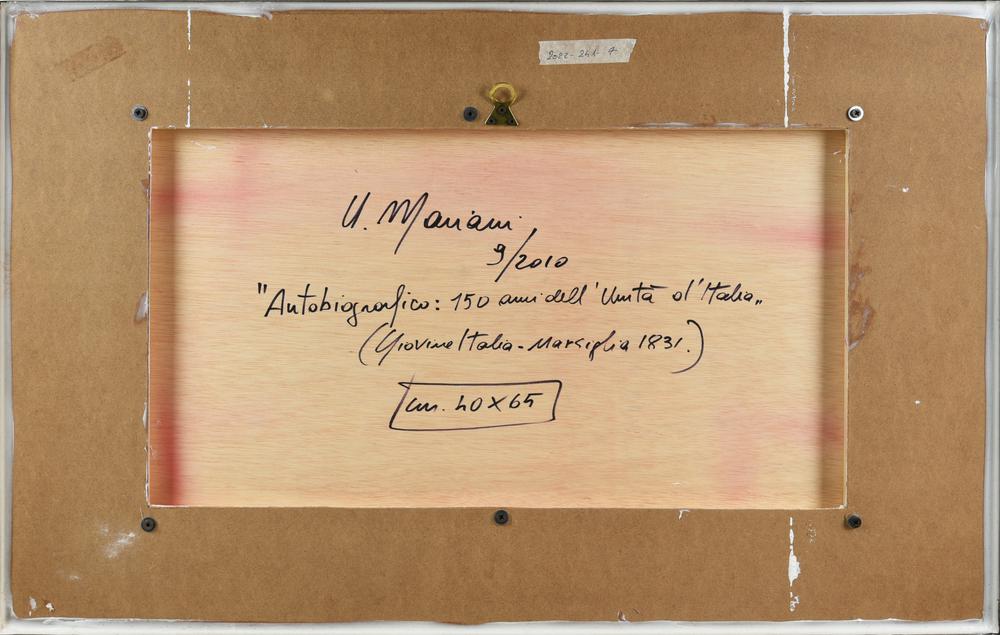 2022-241 7
U. Mariani
9/2010
"Autobiografico: 150 anni dell'Unità d'Italia"
(Giovine Italia - Marsiglia 1831.)
cm. 40x65